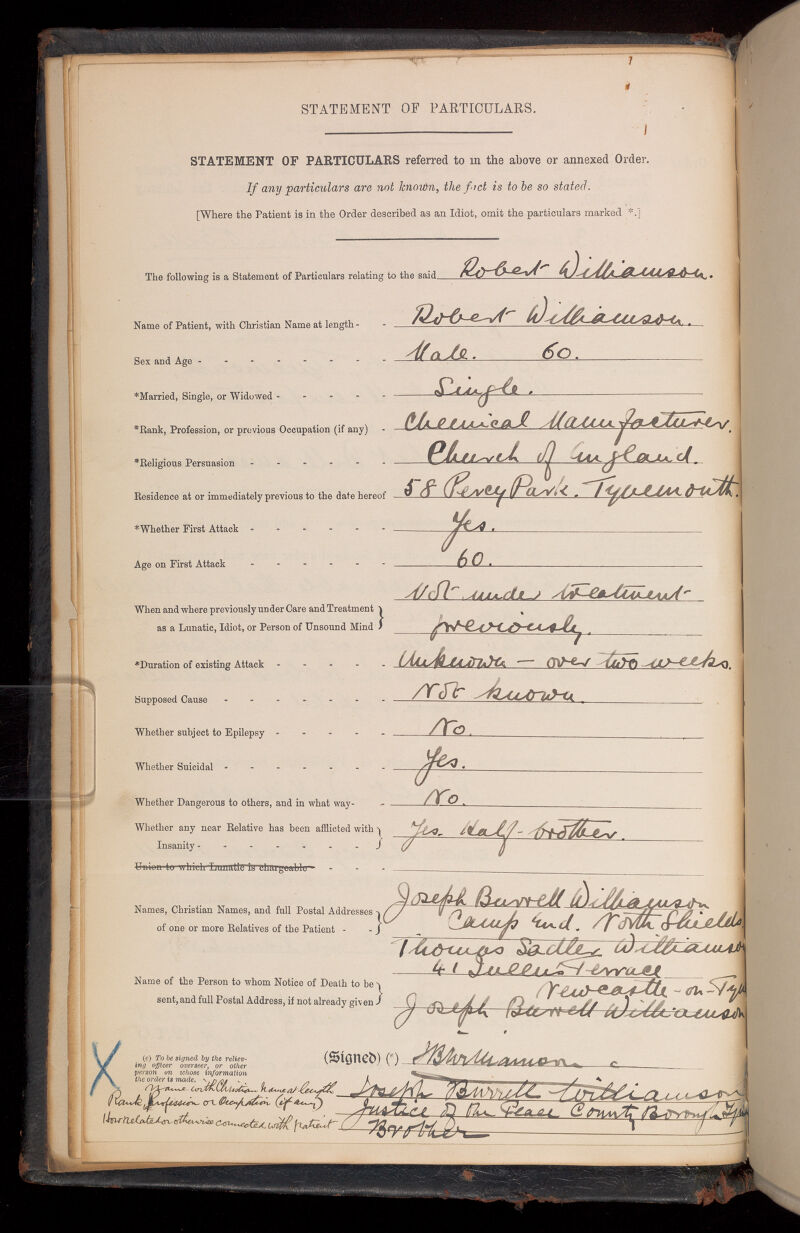 STATEMENT OF PARTICULARS.
STATEMENT OF PARTICULARS referred to in the above or annexed Order.
If any particulars are not known, the fact is to be so stated.
[Where the Patient is in the Order described as an Idiot, omit the particulars marked *.]
The following is a Statement of Particulars relating to the said Robert Williamson.
Name of Patient, with Christian Name at length - - Robert Williamson.
Sex and Age - - - - - - - - Male. 60.
*Married, Single, or Widowed - - - - - Single.
*Rank, Profession, or previous Occupation (if any) - Chemical Manufacturer.
*Religious Persuasion - - - - - - Church of England.
Residence at or immediately previous to the date hereof 58 Percy Park. Tynemouth.
*Whether First Attack - - - - - - Yes.
Age on First Attack - - - - - - 60.
When and where previously under Care and Treatment Not under treatment
as a Lunatic, Idiot, or Person of Unsound Mind previously.
*Duration of existing Attack - - - - - Unknown — over two weeks.
Supposed Cause - - - - - - - Not known.
Whether subject to Epilepsy - - - - - No.
Whether Suicidal - - - - - - - Yes.
Whether Dangerous to others, and in what way - - No.
Whether any near Relative has been afflicted with Yes. Half-brother.
Insanity - - - - - - -
Union to which Lunatic is chargeable - - -
Names, Christian Names, and full Postal Addresses Joseph Burrell Williamson
of one or more Relatives of the Patient - - Camp End. North Shields
Thomas Sadler Williamson
41
Terrace
Name of the Person to whom Notice of Death to be Newcastle-on-Tyne
sent, and full Postal Address, if not already given Joseph Burrell Williamson
(Signed) (c) JBWilliamson
(c) To be signed by the reliev-
ing officer overseer, or other
person on whose information
the order is made.
Name with Christian Name at length Joseph Burrell Williamson
Rank, Profession or Occupation (if any) Justice of the Peace County Borough
How related or otherwise connected with patient Brother